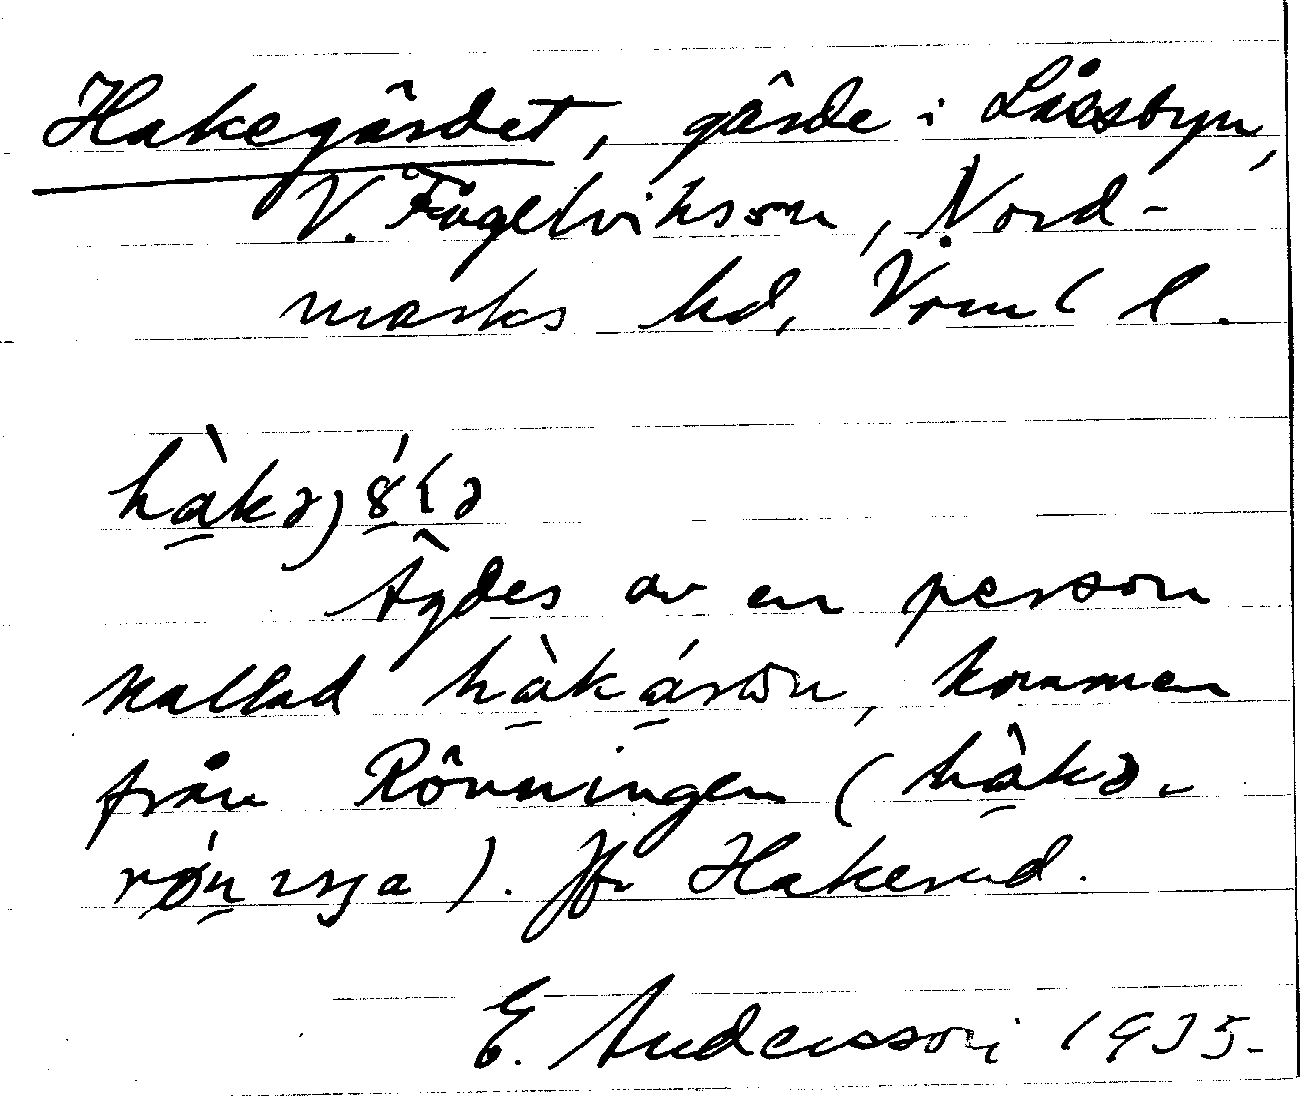 Hakegärdet, gärde i Låssbyn,
V. Fågelvik sn, Nord-
marks hd, Värml l.
Ägdes av en person
kallad hàkárən, kommen
från Rönningen (hàkə-
). Jfr Hakerud.
E. Andersson 1935